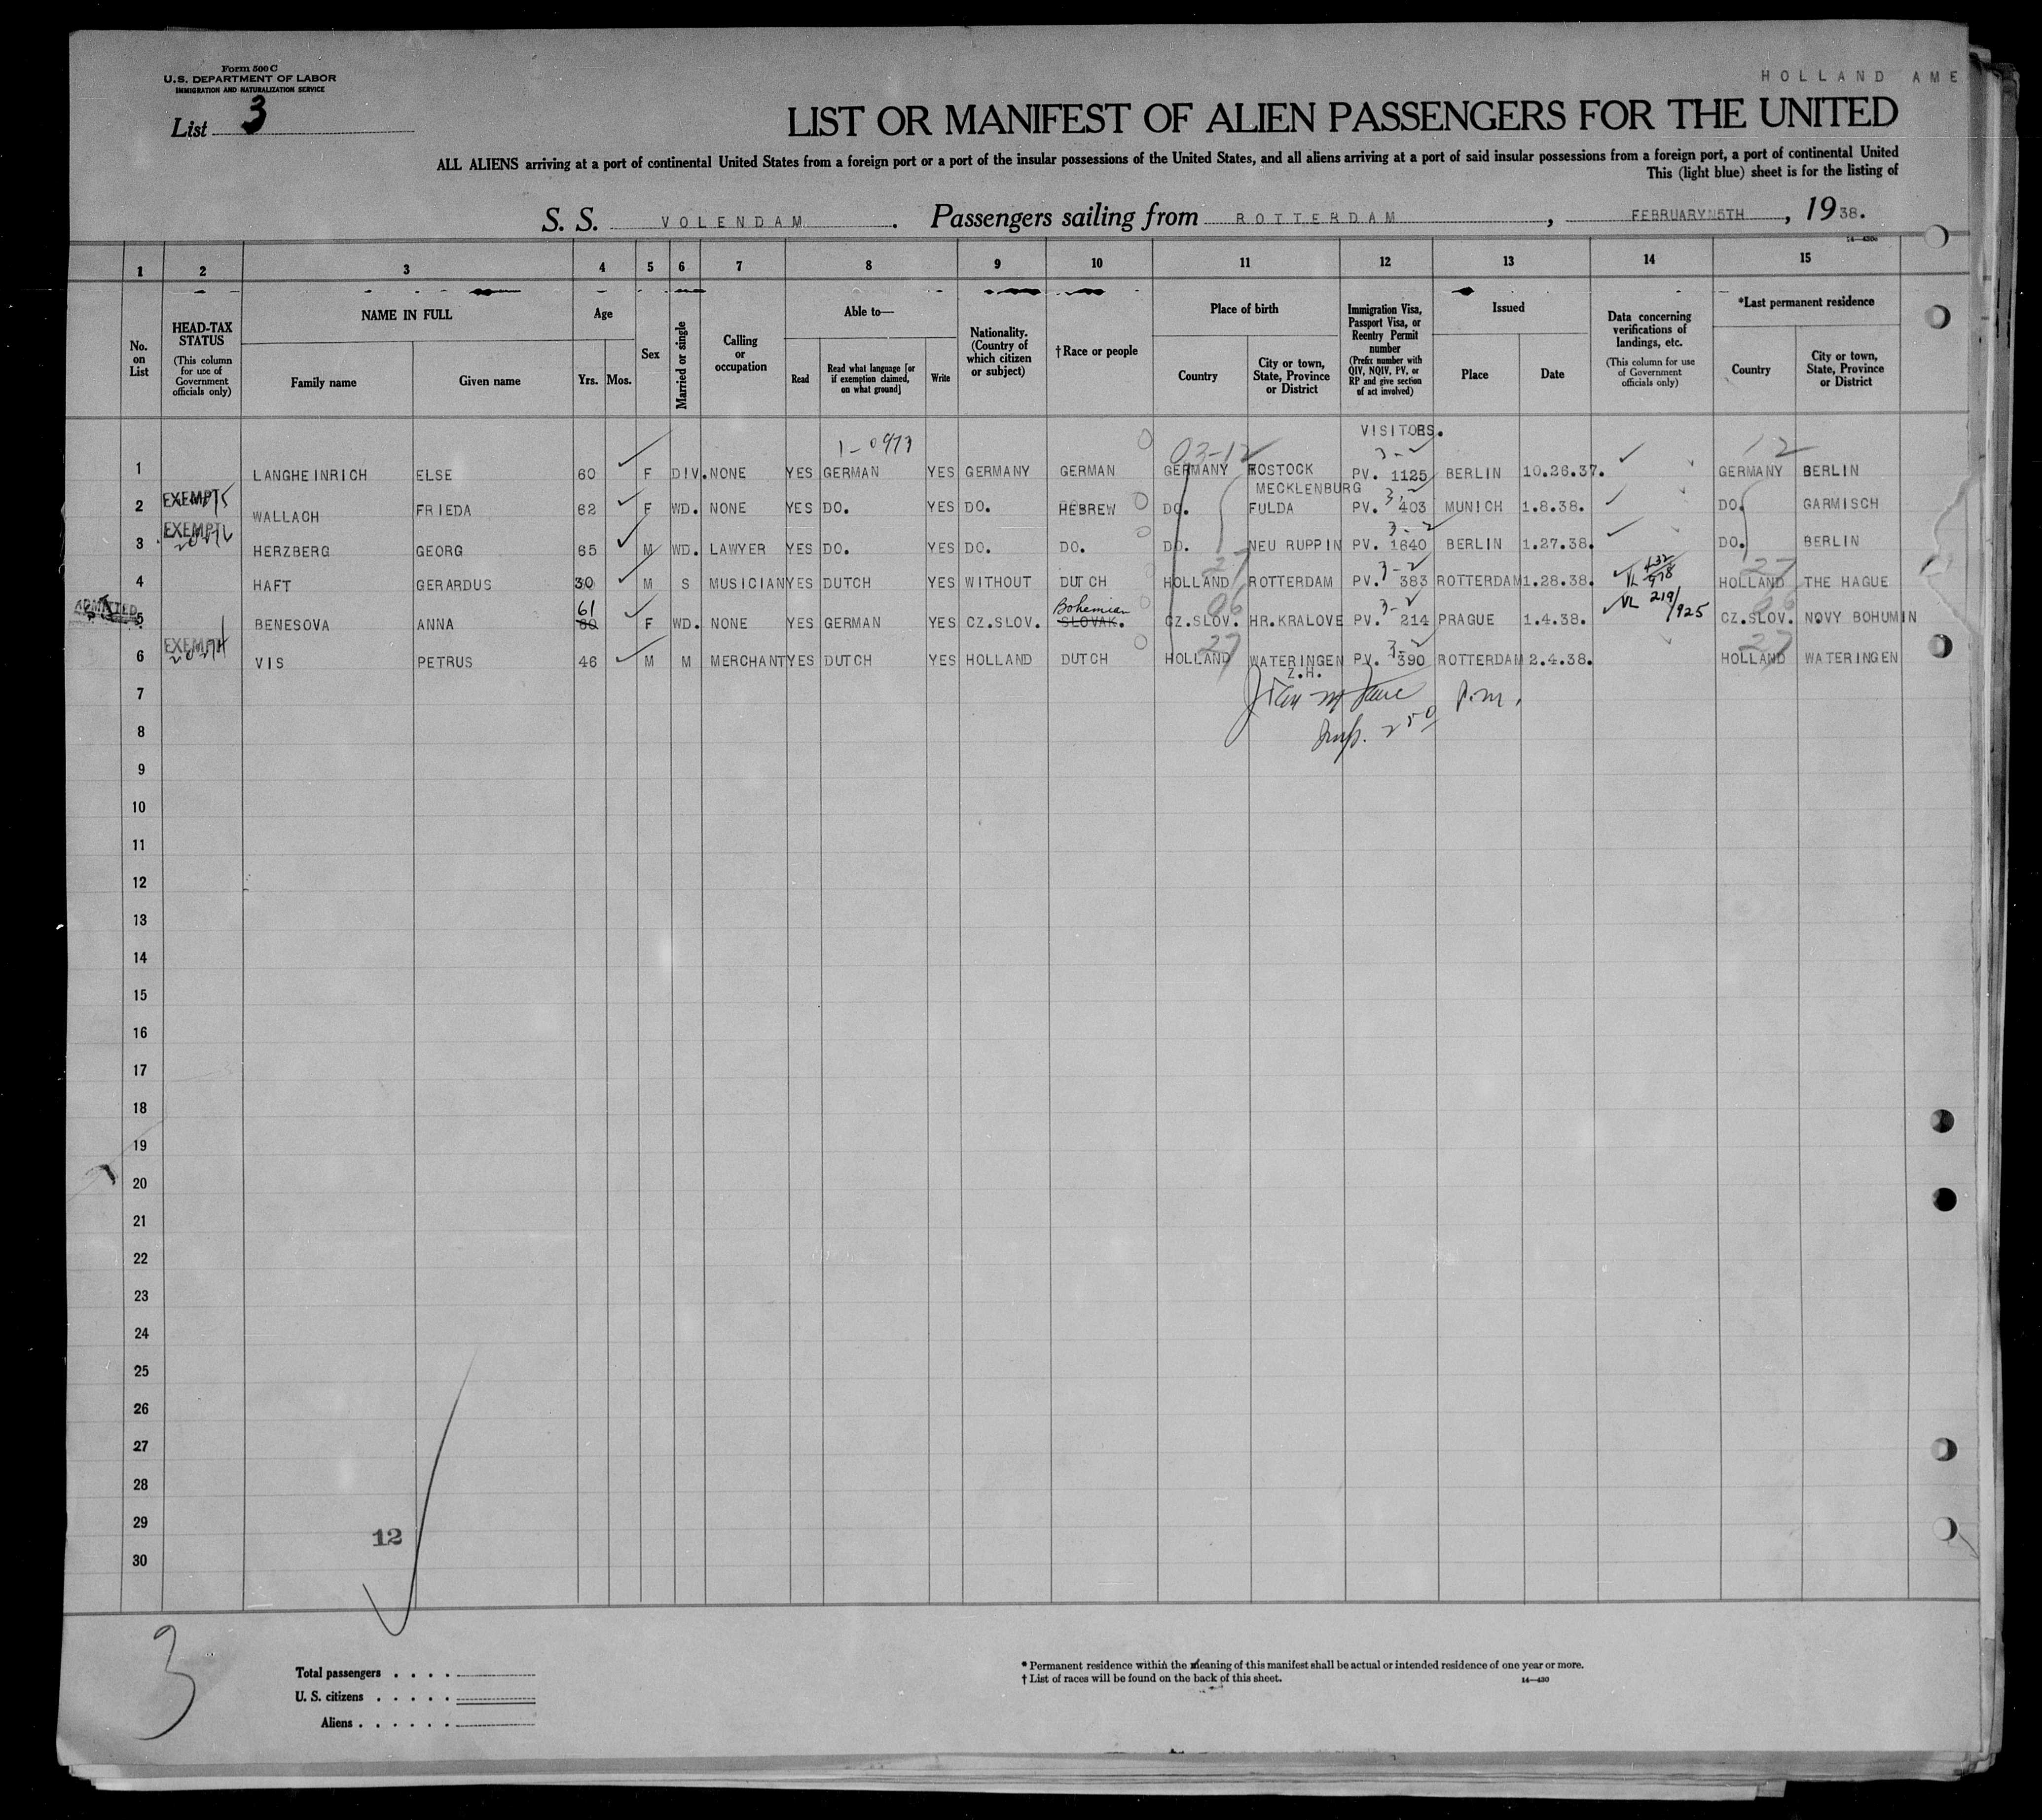 Form 500 C
U.S. DEPARTMENT OF LABOR
IMMIGRATION AND NATURALIZATION SERVICE
HOLLAND AME
List 3
LIST OR MANIFEST OF ALIEN PASSENGERS FOR THE UNITED
ALL ALIENS arriving at a port of continental United States from a foreign port or a port of the insular possessions of the United States, and all aliens arriving at a port of said insular possessions from a foreign port, a port of continental United
This (light blue) sheet is for the listing of
S. S. VOLENDAM. Passengers sailing from ROTTERDAM, FEBRUARY 5TH, 1938.
14—430c
1 2 3 4 5 6 7 8 9 10 11 12 13 14 15
No. on List
HEAD-TAX STATUS
(This column for use of Government officials only)
NAME IN FULL
Family name
Given name
Age
Yrs. Mos.
Sex
Married or single
Calling or occupation
Able to—
Read
Read what language [or if exemption claimed, on what ground]
Write
Nationality. (Country of which citizen or subject)
†Race or people
Place of birth
Country
City or town, State, Province or District
Immigration Visa, Passport Visa, or Reentry Permit number
(Prefix number with QIV, NQIV, PV, or RP and give section of act involved)
Issued
Place
Date
Data concerning verifications of landings, etc.
(This column for use of Government officials only)
*Last permanent residence
Country
City or town, State, Province or District
VISITORS.
1-0973 03-12 3-2 12
1 LANGHEINRICH ELSE 60 F DIV. NONE YES GERMAN YES GERMANY GERMAN GERMANY ROSTOCK MECKLENBURG PV. 1125 BERLIN 10.26.37. GERMANY BERLIN
2 EXEMPT WALLACH FRIEDA 62 F WD. NONE YES DO. YES DO. HEBREW DO. FULDA PV. 403 MUNICH 1.8.38. DO. GARMISCH
3 EXEMPT HERZBERG GEORG 65 M WD. LAWYER YES DO. YES DO. DO. DO. NEU RUPPIN PV. 1640 BERLIN 1.27.38. DO. BERLIN
4 HAFT GERARDUS 30 M S MUSICIAN YES DUTCH YES WITHOUT DUTCH HOLLAND 27 ROTTERDAM PV. 383 3-2 ROTTERDAM 1.28.38. HOLLAND 27 THE HAGUE
ADMITTED 5 BENESOVA ANNA 61 60 F WD. NONE YES GERMAN YES CZ.SLOV. Bohemian SLOVAK. CZ.SLOV. 06 HR.KRALOVE PV. 214 3-2 PRAGUE 1.4.38. VL 219/925 CZ.SLOV. 06 NOVY BOHUMIN
6 EXEMPT VIS PETRUS 46 M M MERCHANT YES DUTCH YES HOLLAND DUTCH HOLLAND 27 WATERINGEN Z.H. PV. 390 3-2 ROTTERDAM 2.4.38. HOLLAND 27 WATERINGEN
7
p.m.
8
Insp. 250
9
10
11
12
13
14
15
16
17
18
19
20
21
22
23
24
25
26
27
28
29
12
30
3
Total passengers . . . .
U. S. citizens . . . . .
Aliens . . . . . .
* Permanent residence within the meaning of this manifest shall be actual or intended residence of one year or more.
† List of races will be found on the back of this sheet.
14—430